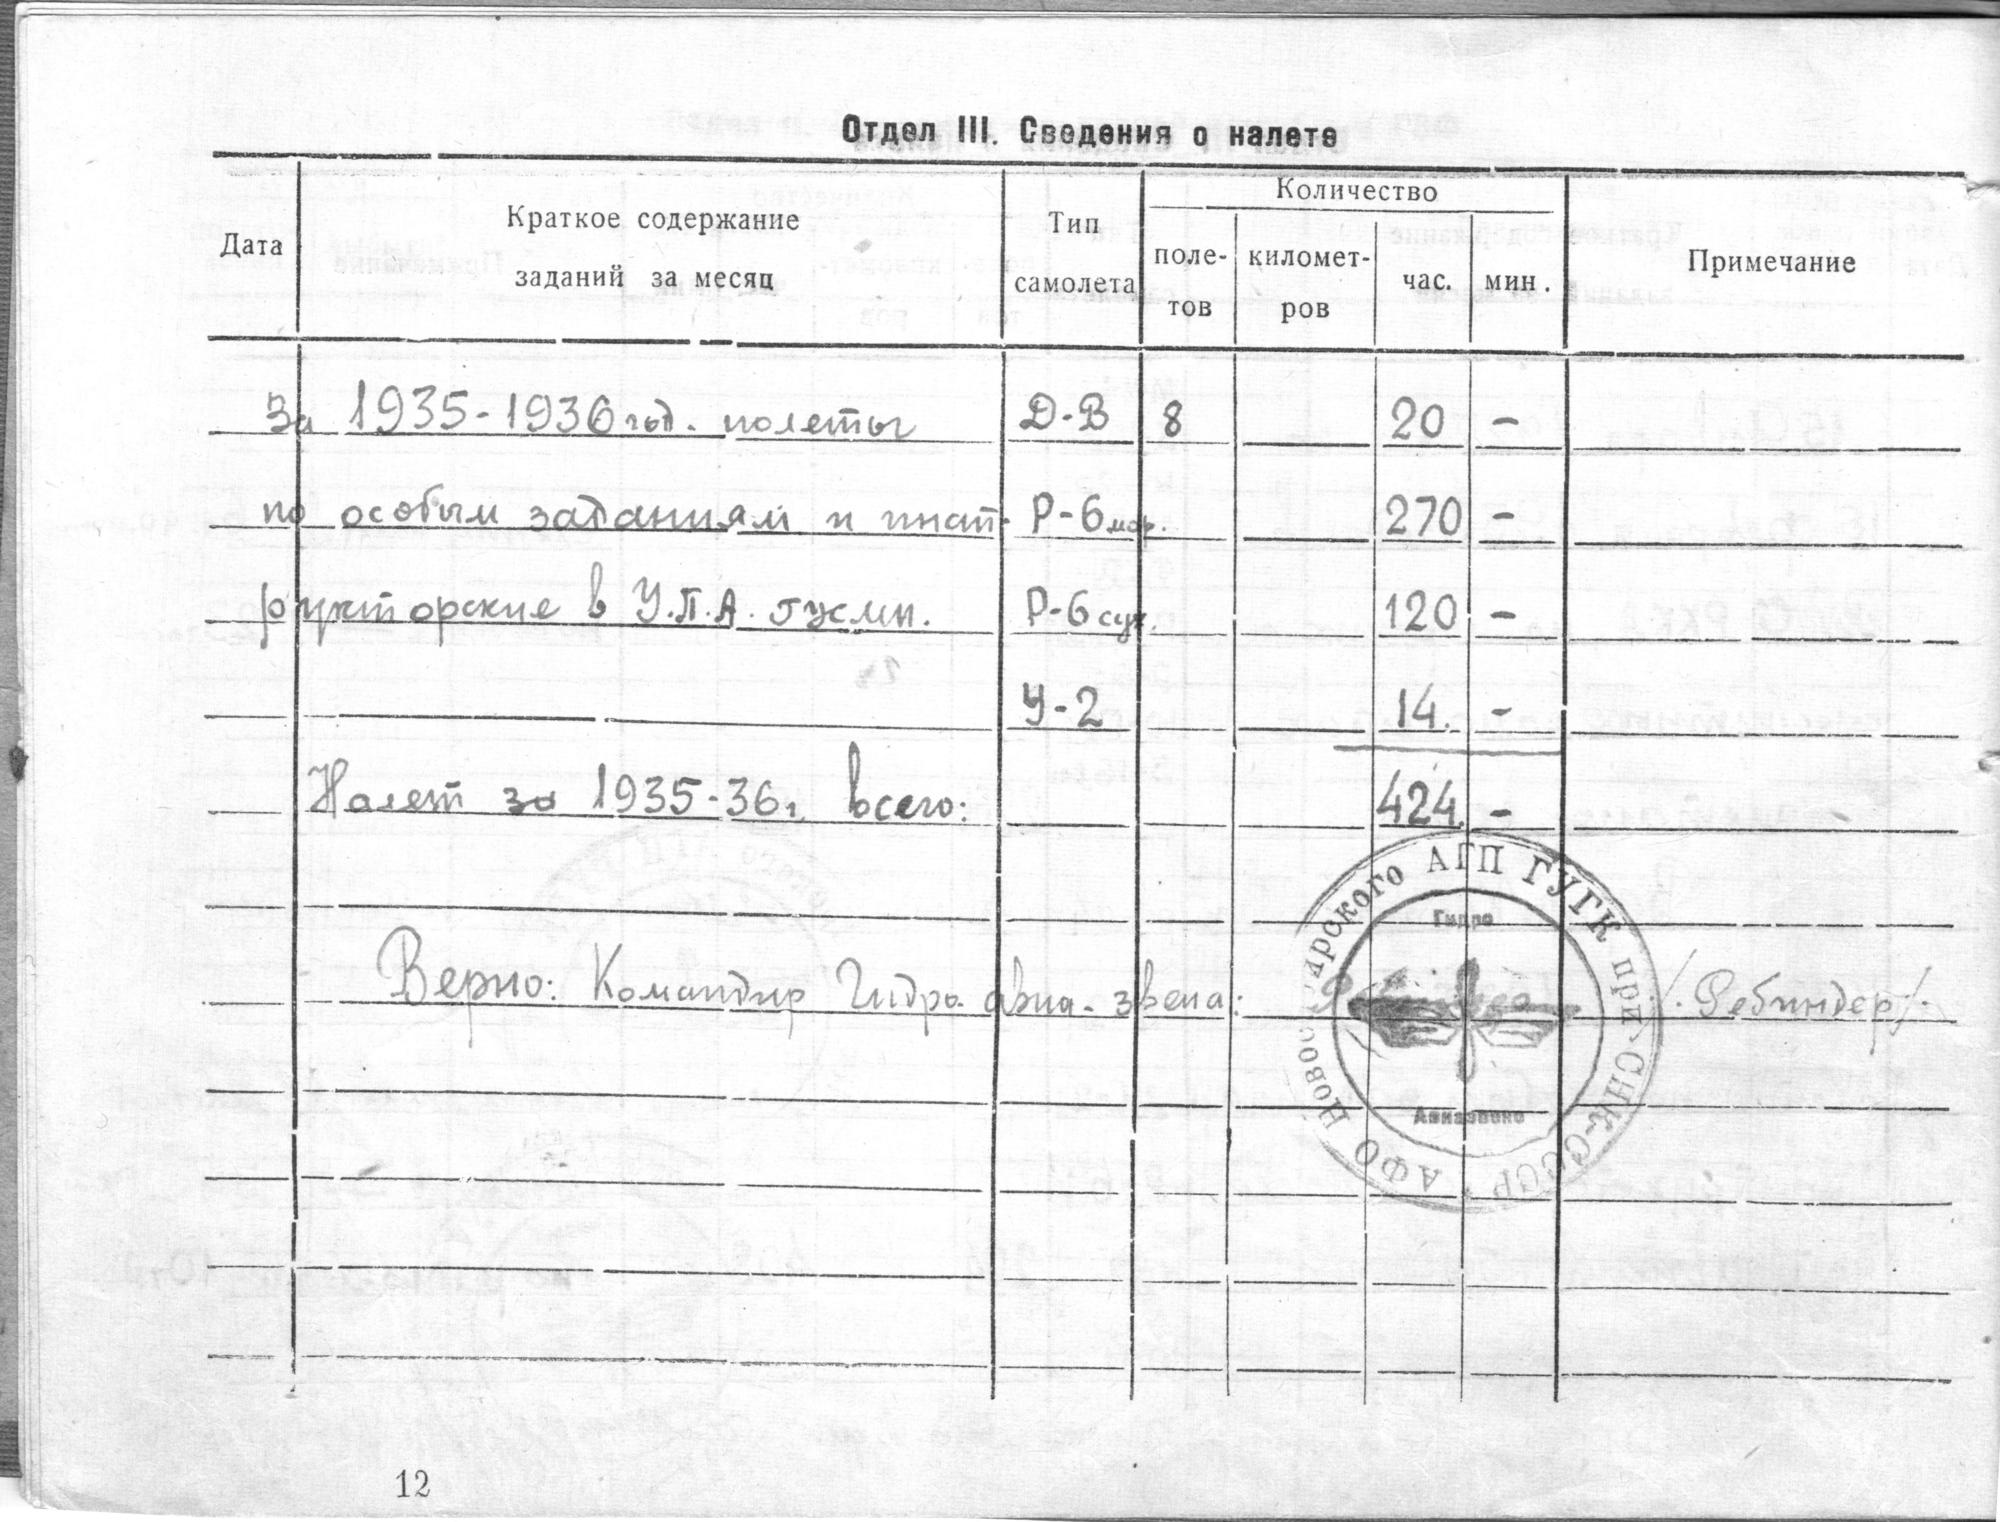 Отдел III. Сведения о налете
Дата
Краткое содержание
заданий за месяц
Тип
самолета
Количество
поле-
тов
километ-
ров
час.
мин.
Примечание
За 1935-1936 год. полеты Д-В 8 20 -
по особым заданиям и инст- Р-6 мор. 270 -
рукторские в У.П.А. гусмп. Р-6 сух. 120 -
У-2 14. -
Налет за 1935-36 г. всего: 424 -
Верно: Командир Гидро-авиа-звена: /Ребиндер/.
АФО Новосибирского АГП ГУГК при СНК-СССР
Гидро
Авиазвено
12